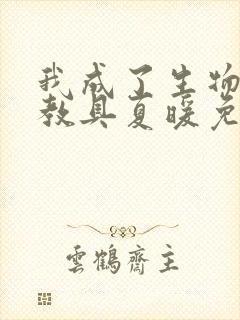 我成了生物
教具夏暖免
雲鶴齋主